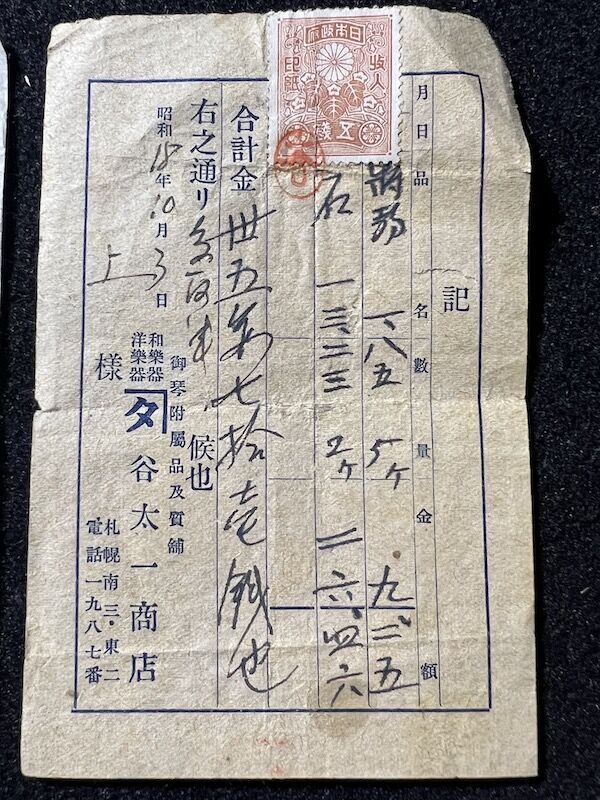 日本政府
収入
印紙
五錢
記
月日 品名 數量 金額
一、八五 5ヶ 九、二五
一三、二三 2ヶ 二六、四六
合計金 卅五圓七拾壱錢也
右之通リ 候也
昭和18年10月3日
上 様
御琴附屬品及質舖
和樂器
洋樂器
タ 谷太一商店
札幌南三・東二
電話一九八七番